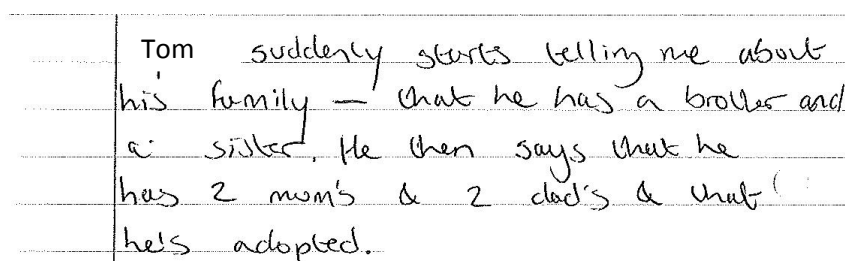 Tom suddenly starts telling me about
his family – that he has a brother and
a sister. He then says that he
has 2 mum's & 2 dad's & that
he's adopted.